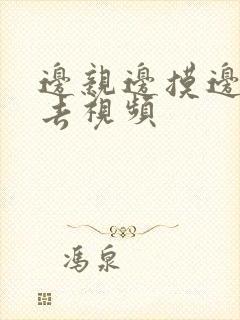 邊親邊摸邊
去視頻
馮泉